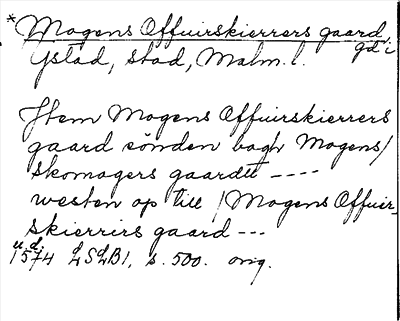 *Mogens Offuirskierrers gaard, gd i
Ystad, stad, Malm. l.
Item Mogens Offuirskierrers
gaard sönden bagh Mogens/
Skomagers gaardt ----
westen op till /Mogens Offuer-
skierrirs gaard ---
u.d.
1574 LSLB1, s. 500. orig.